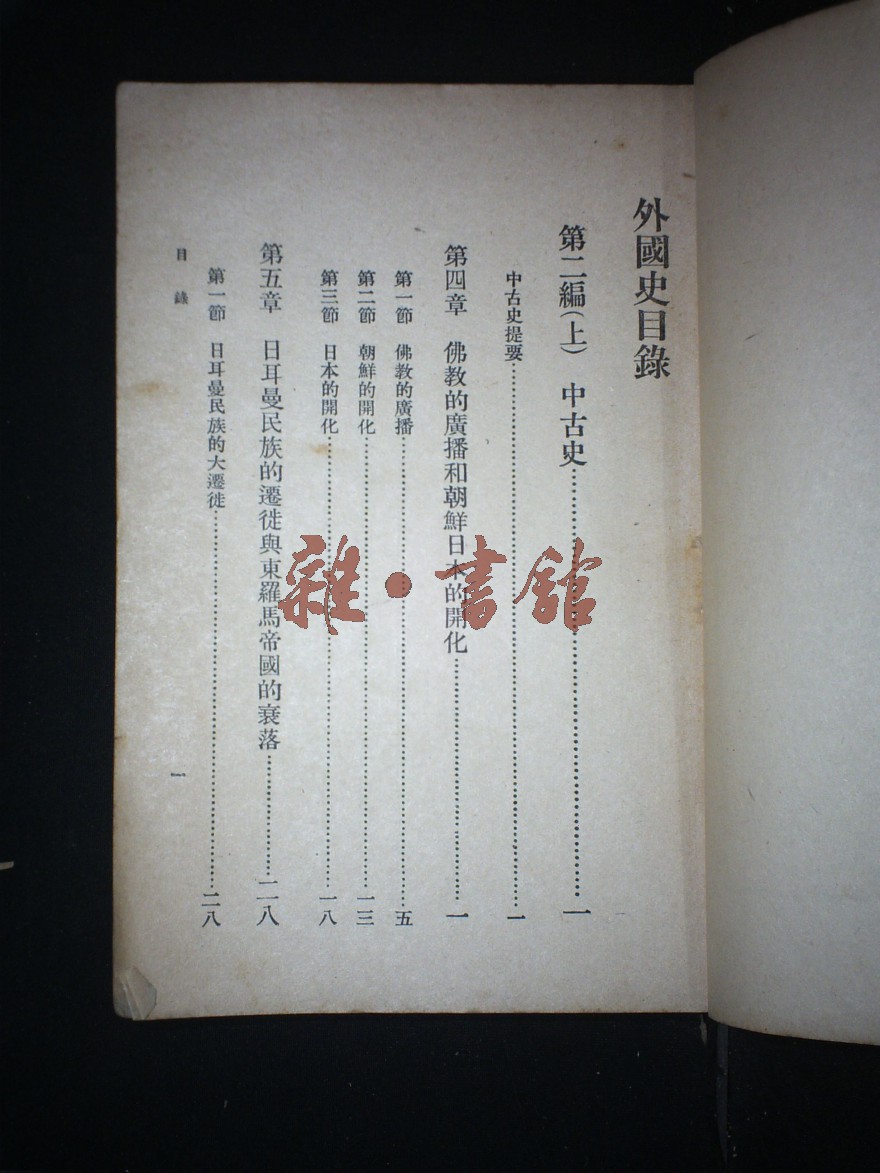 外國史目錄
第二編(上) 中古史……一
中古史提要……一
第四章 佛教的廣播和朝鮮日本的開化……一
第一節 佛教的廣播……五
第二節 朝鮮的開化……一三
第三節 日本的開化……一八
第五章 日耳曼民族的遷徙與東羅馬帝國的衰落……二八
第一節 日耳曼民族的大遷徙……二八
目錄 一
雜·書館